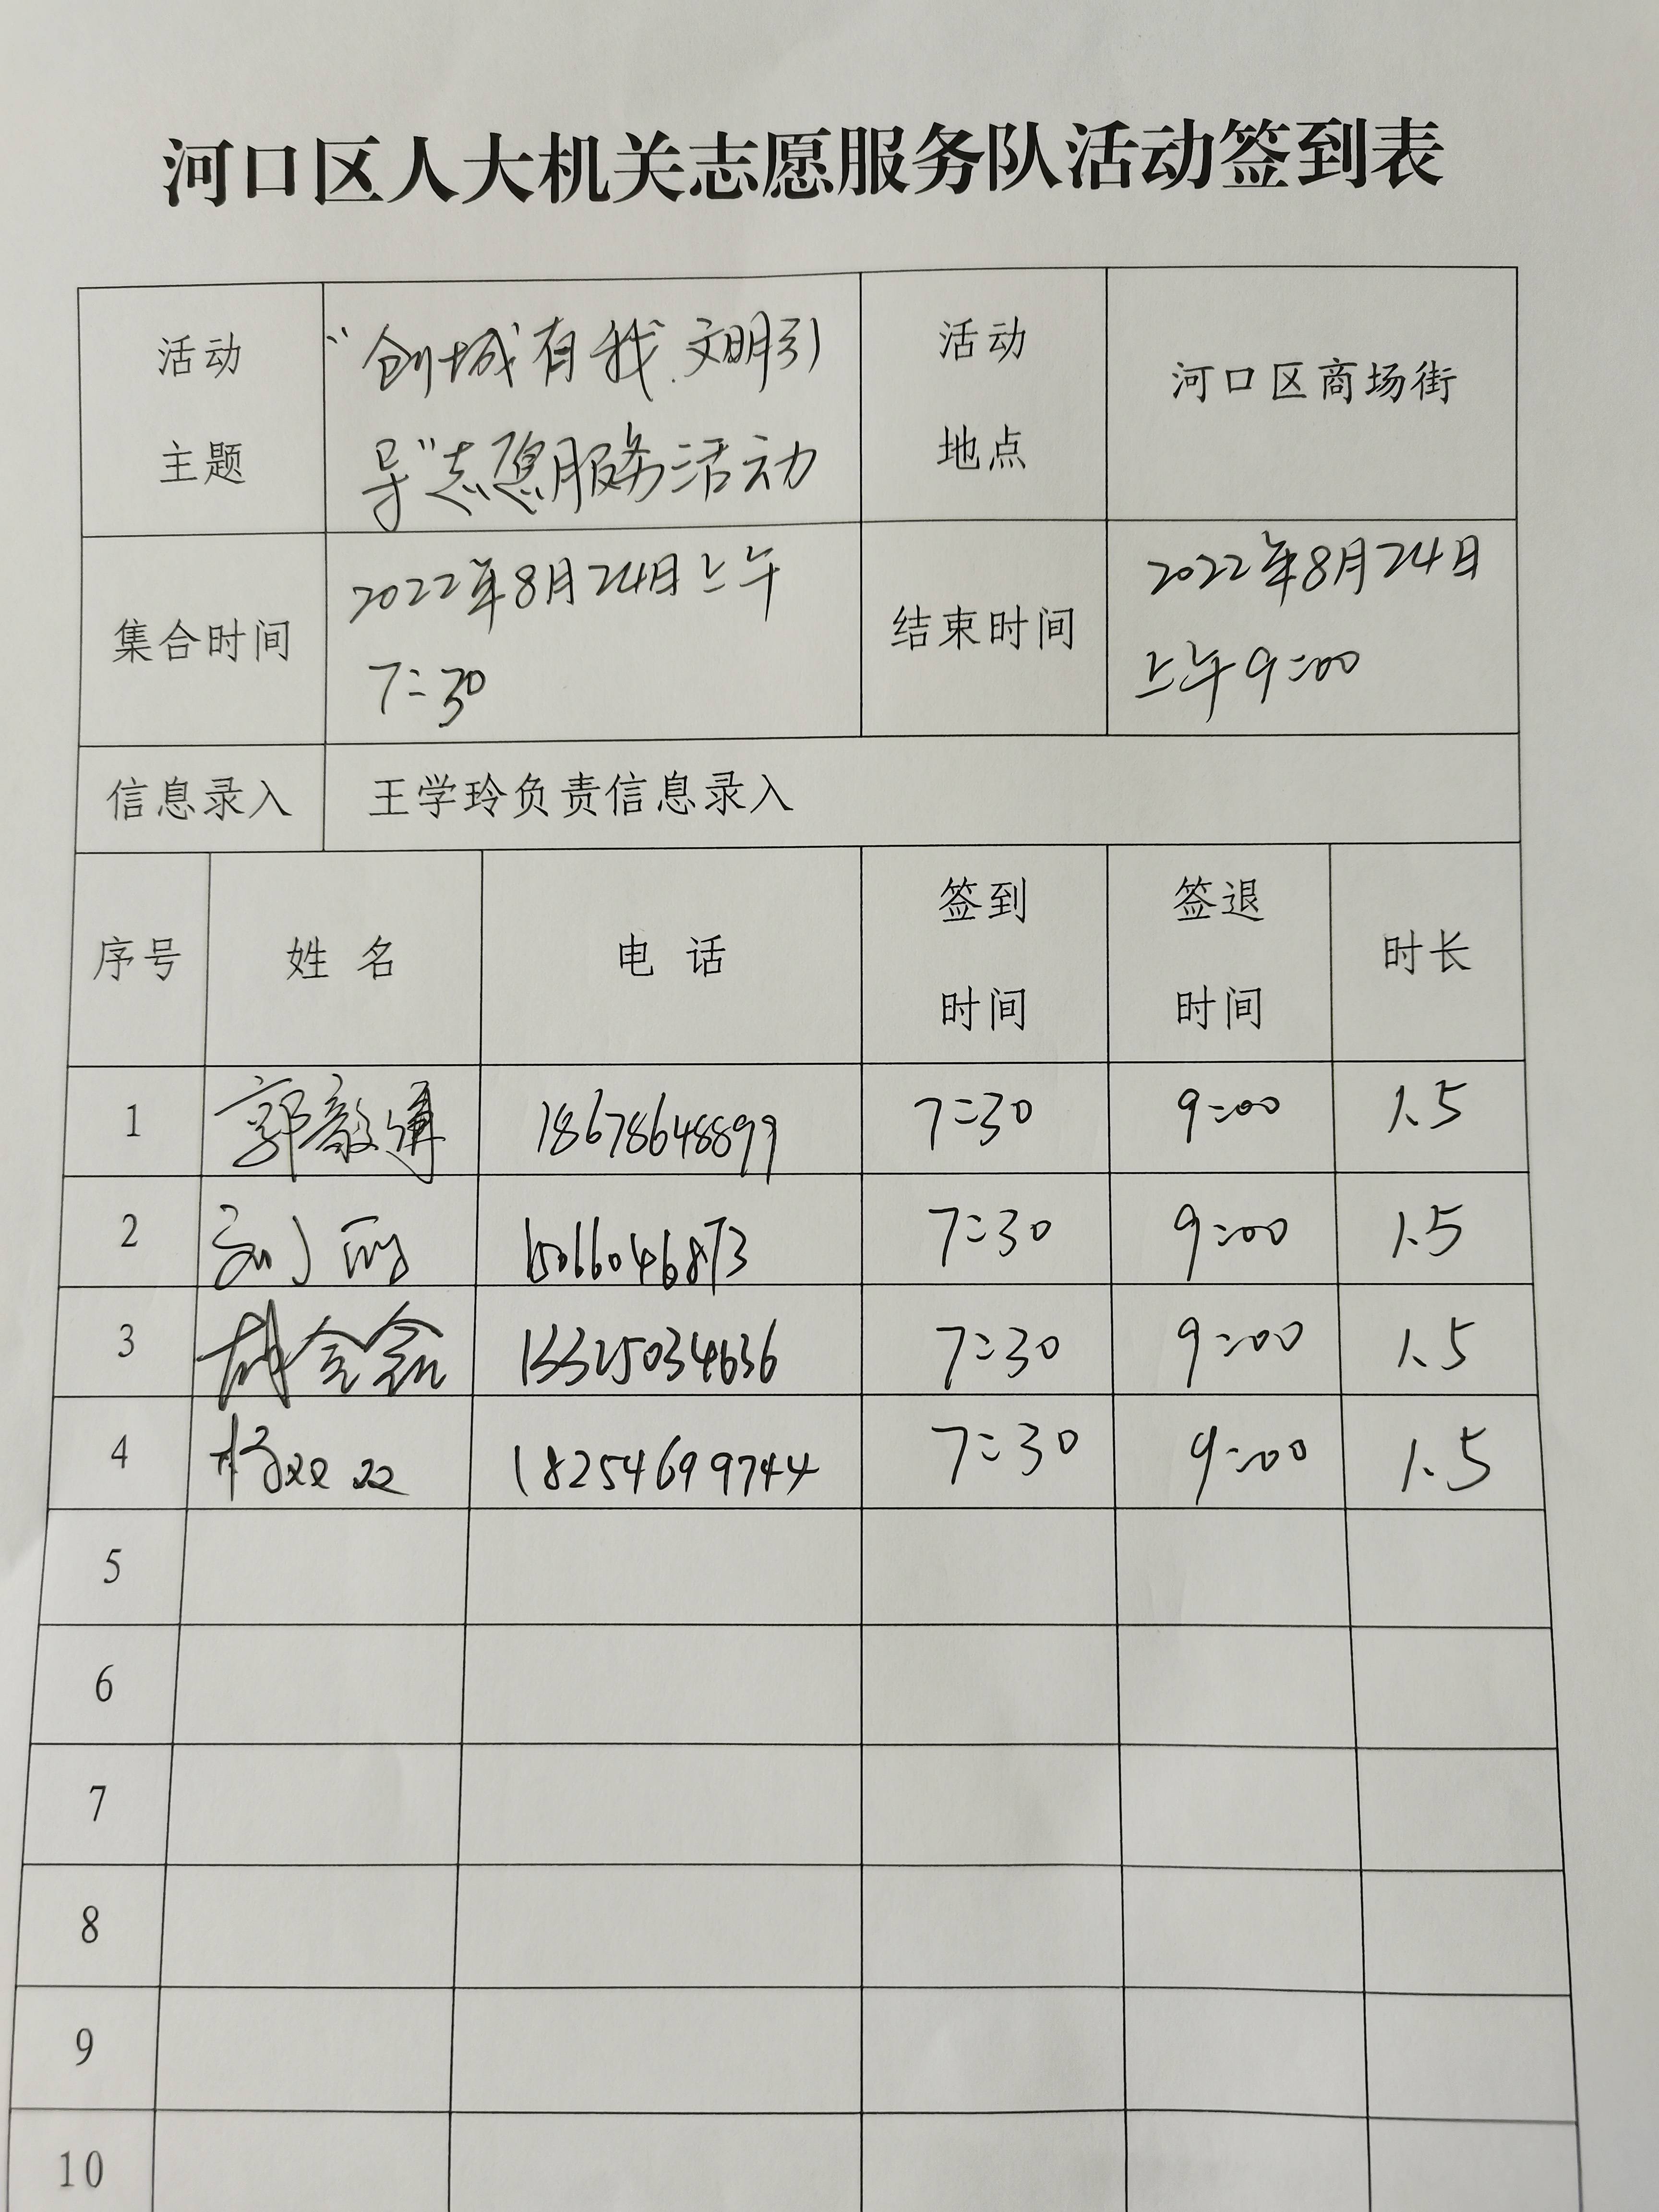 河口区人大机关志愿服务队活动签到表
活动
主题
“创城有我.文明引
导”志愿服务活动
活动
地点
河口区商场街
集合时间
2022年8月24日上午
7:30
结束时间
2022年8月24日
上午9:00
信息录入
王学玲负责信息录入
序号
姓 名
电 话
签到
时间
签退
时间
时长
1
18678648899
7:30
9:00
1.5
2
刘丽
15066046873
7:30
9:00
1.5
3
13325034636
7:30
9:00
1.5
4
杨双双
18254699744
7:30
9:00
1.5
5
6
7
8
9
10